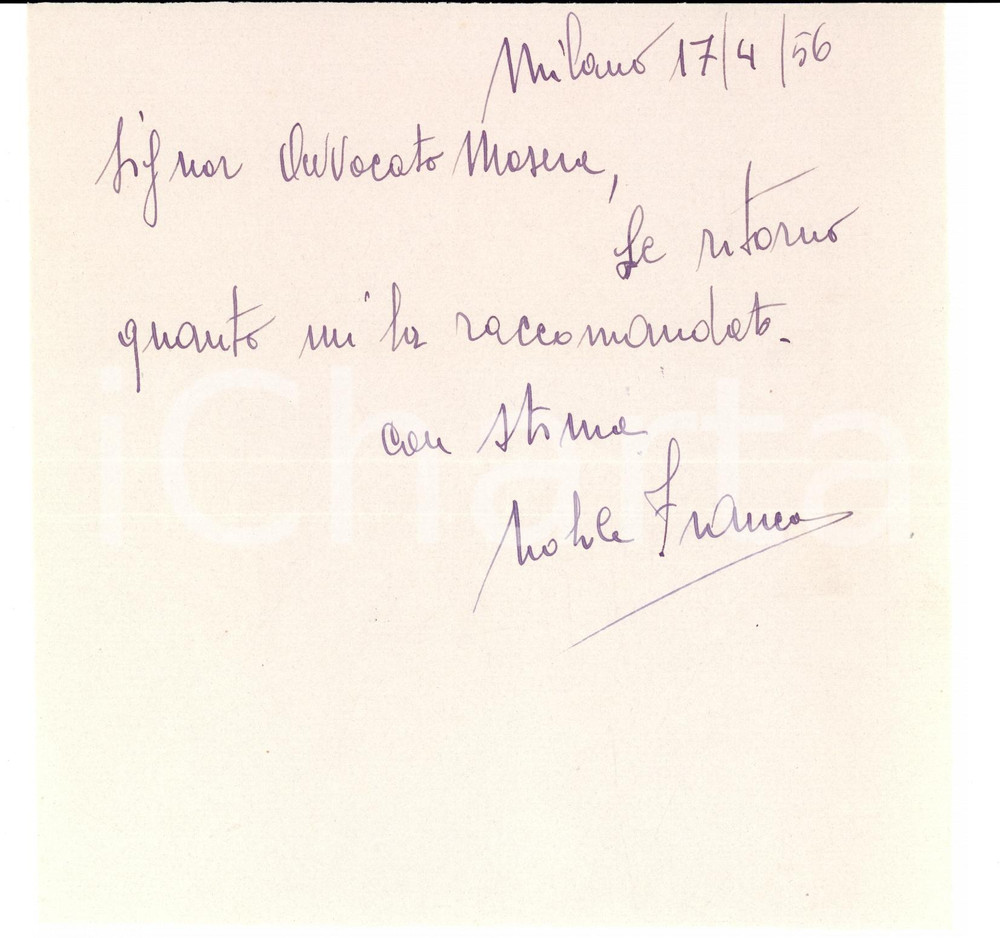 Milano 17/4/56
Signor Avvocato Masera,
Le ritorno
quanto mi ha raccomandato.
con stima
Nobile Franco
iCharta